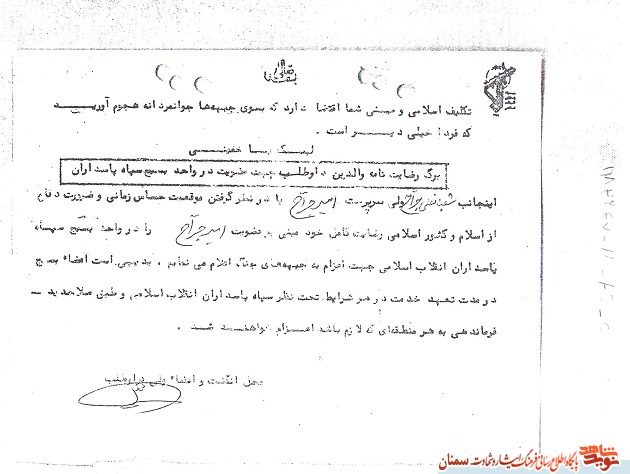 بسمه تعالی
تکلیف اسلامی و میهنی شما اقتضا دارد که بسوی جبهه‌ها جوانمردانه هجوم آورید
که فردا خیلی دیر است .
لبیک یا خمینی
برگ رضایت نامه والدین داوطلب جهت عضویت در واحد بسیج سپاه پاسداران
اینجانب ولی سرپرست امیر با در نظر گرفتن موقعیت حساس زمانی و ضرورت دفاع
از اسلام و کشور اسلامی رضایت کامل خود مبنی بر عضویت امیر را در واحد بسیج سپاه
پاسداران انقلاب اسلامی جهت اعزام به جبهه‌های جنگ اعلام می نمایم . بدیهی است اعضاء بسیج
در مدت تعهد خدمت در هر شرایط تحت نظر سپاه پاسداران انقلاب اسلامی و طبق صلاحدید
فرماندهی به هر منطقه‌ای که لازم باشد اعزام خواهند شد .
محل انگشت و امضاء ولی داوطلب
نوید شاهد پایگاه اطلاع رسانی فرهنگ ایثار و شهادت سمنان